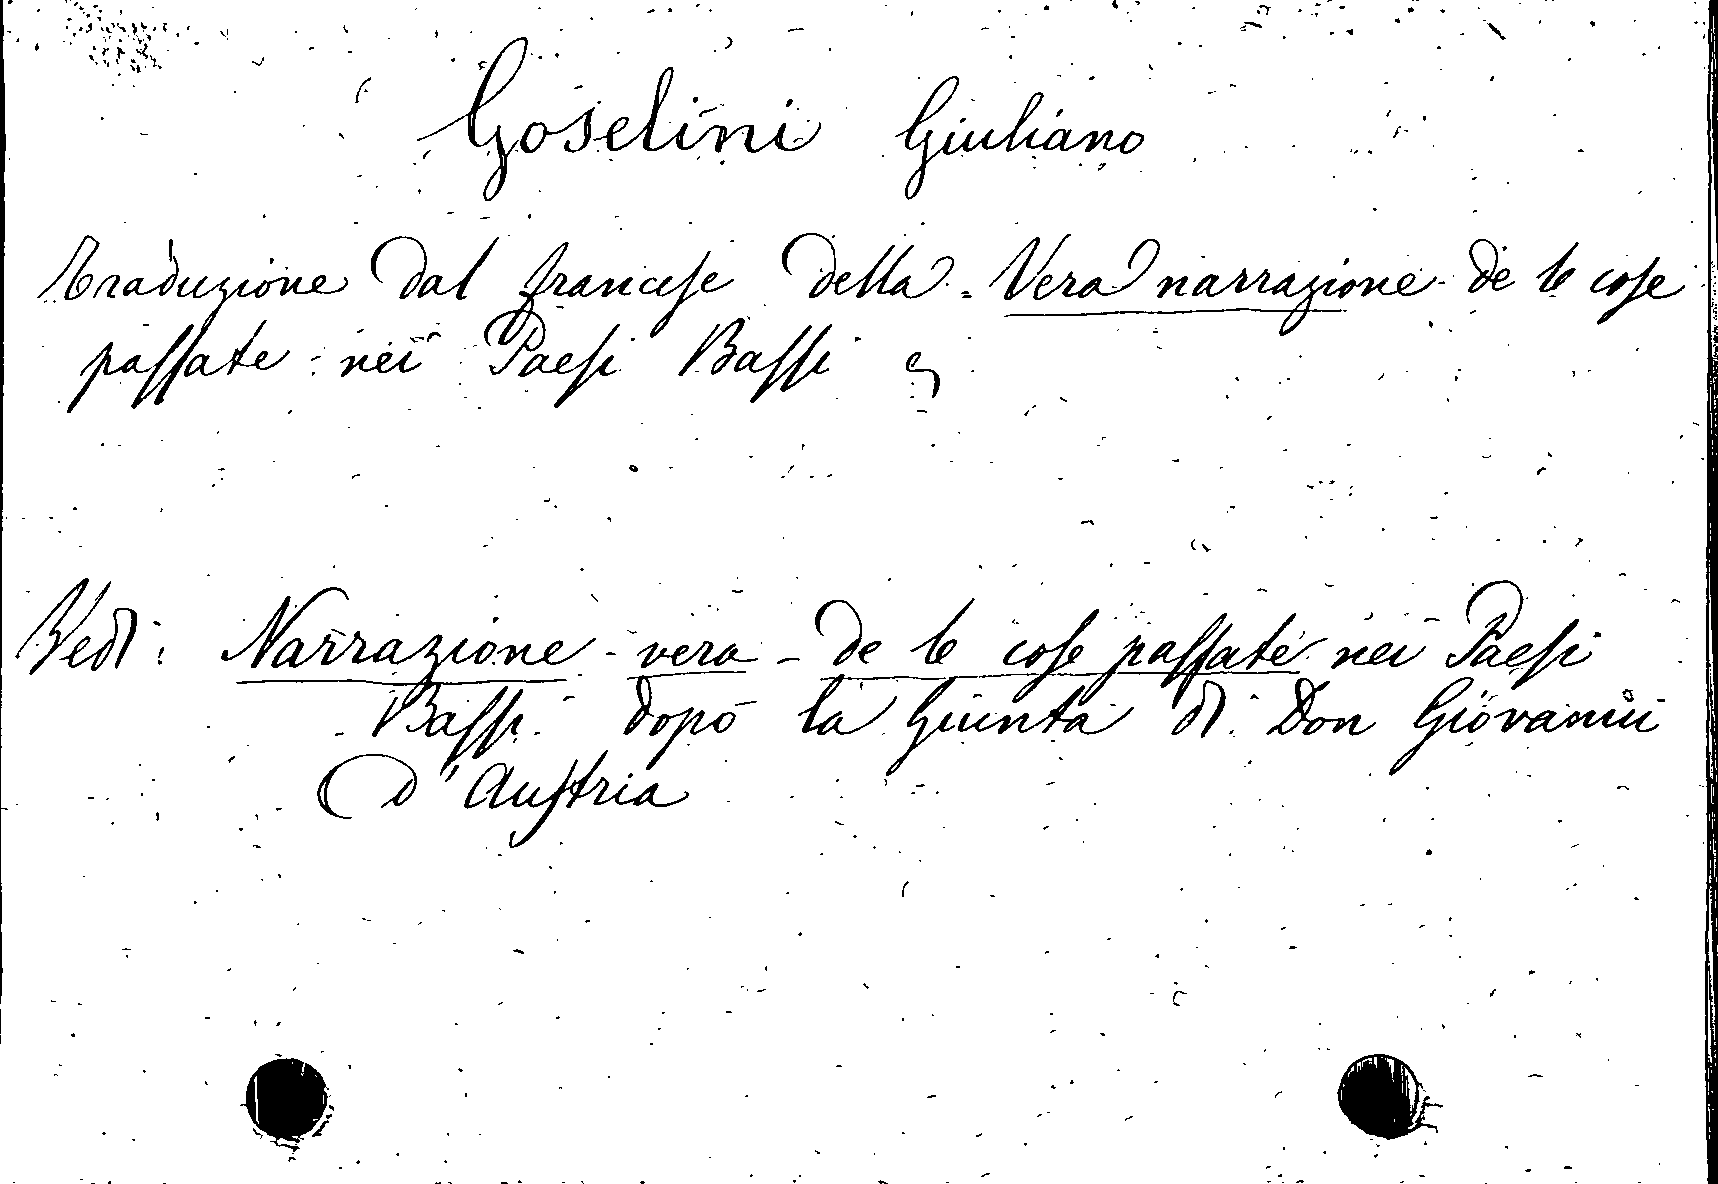 Goselini Giuliano
Traduzione dal francese della - Vera narrazione de le cose
passate nei Paesi Bassi
Vedi: Narrazione - vera - de le cose passate nei Paesi
Bassi dopo la Giunta di Don Giovanni
d'Austria